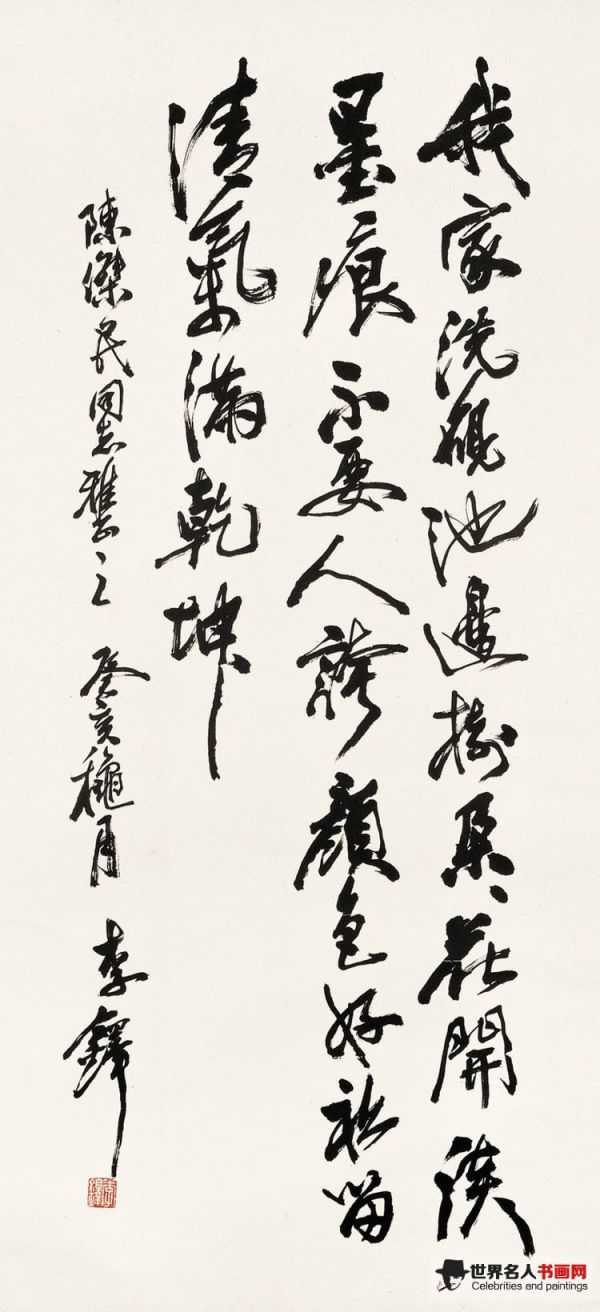 我家洗硯池邊樹朶、花開淡
墨痕不要人誇顏色好祇留
清氣滿乾坤
陳傑民同志雅之 癸亥穐月 李鐸
世界名人书画网
Celebrities and paintings